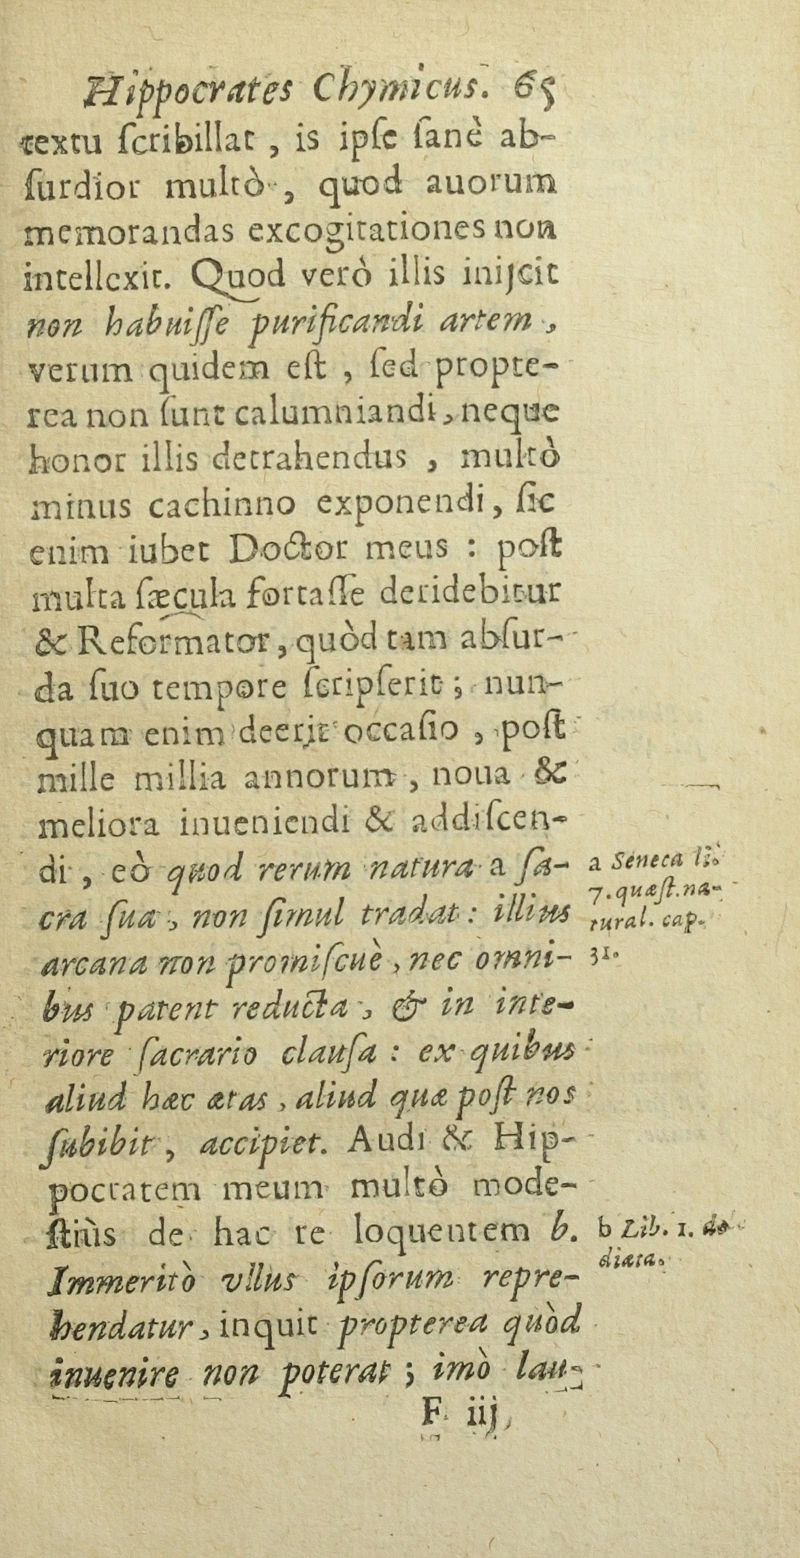 Hippocrates Chymicus. 65
textu ſcribillat, is ipſe ſanè ab-
ſurdior multò, quod auorum
memorandas excogitationes non
intellexit. Quod verò illis inijcit
non habuiſſe purificandi artem,
verum quidem eſt, ſed propte-
rea non ſunt calumniandi, neque
honor illis detrahendus, multò
minus cachinno exponendi, ſic
enim iubet Doctor meus : poſt
multa ſæcula fortaſſe deridebitur
& Reformator, quòd tam abſur-
da ſuo tempore ſcripſerit ; nun-
quam enim deerit occaſio, poſt
mille millia annorum, noua &
meliora inueniendi & addiſcen-
di, eò quod rerum natura a ſa-
cra ſua, non ſimul tradat : illius
arcana non promiſcuè, nec omni-
bus patent reducta, & in inte-
riore ſacrario clauſa : ex quibus
aliud hæc ætas, aliud quæ poſt nos
ſubibit, accipiet. Audi & Hip-
pocratem meum multò mode-
ſtiùs de hac re loquentem b.
Immeritò vllus ipſorum repre-
hendatur, inquit propterea quòd
inuenire non poterat ; imò lau-
F iij
a Seneca li.
7. quæſt. na-
tural. cap.
31.
b Lib. 1. de
diæta.